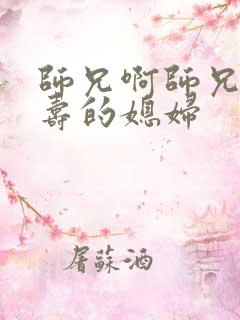 師兄啊師兄
壽的媳婦
屠蘇酒